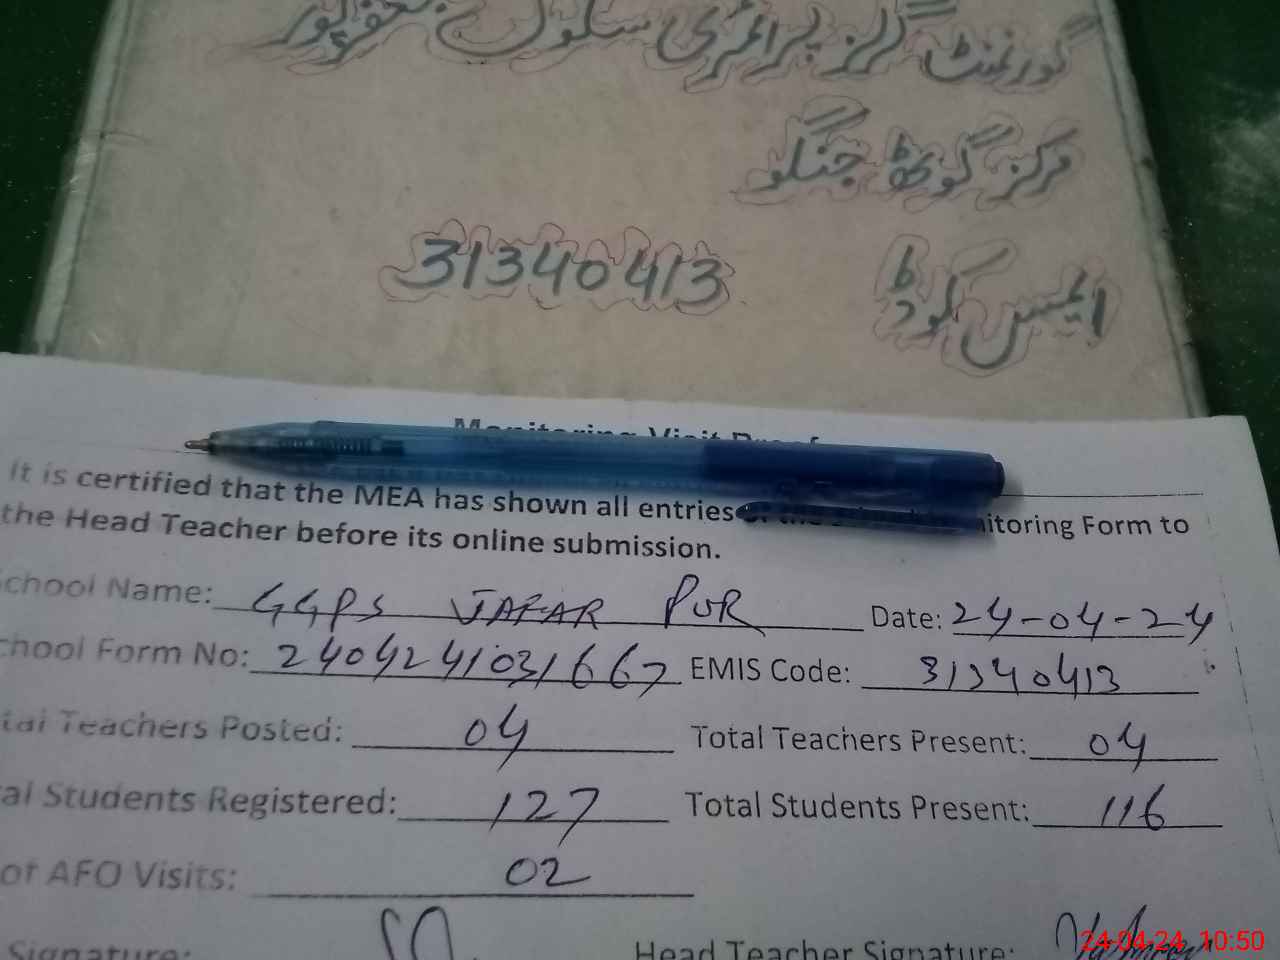 گورنمنٹ گرلز پرائمری سکول جعفرپور
مرکز گوٹھ جنگو
ایمس کوڈ 31340413
Monitoring Visit Proof
It is certified that the MEA has shown all entries of the Monitoring Form to
the Head Teacher before its online submission.
School Name: GGPS JAFAR PUR Date: 24-04-24
School Form No: 2404241031667 EMIS Code: 31340413
Total Teachers Posted: 04 Total Teachers Present: 04
Total Students Registered: 127 Total Students Present: 116
of AFO Visits: 02
Signature: Head Teacher Signature:
24-04-24 10:50